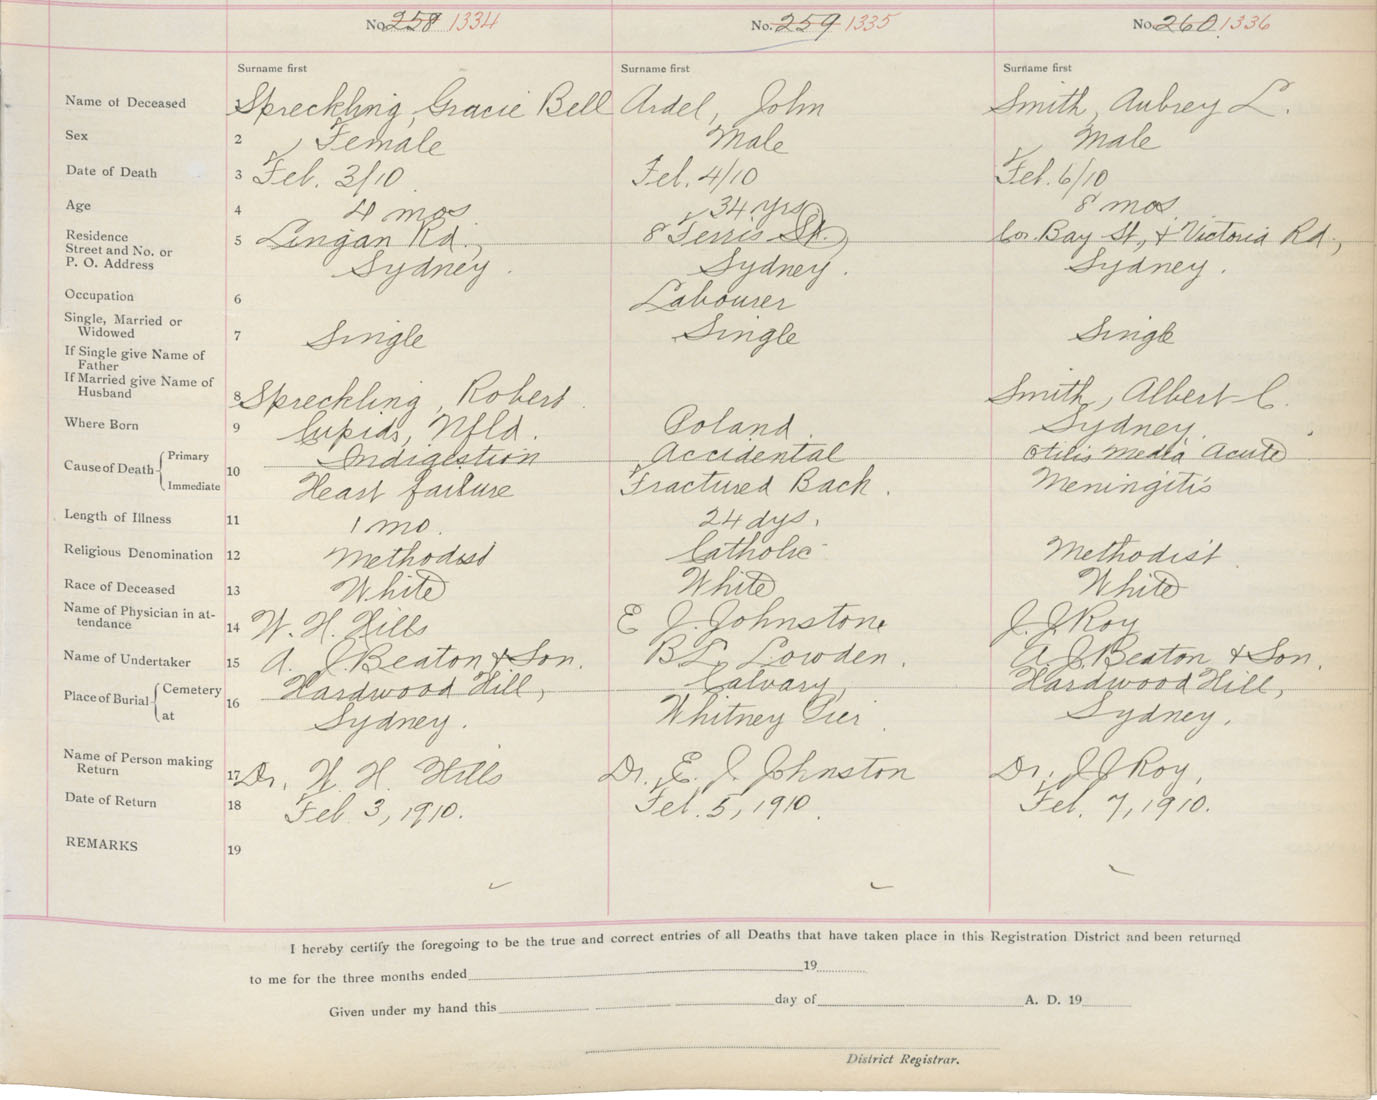 No. 258 1334 No. 259 1335 No. 260 1336
Surname first Surname first Surname first
Name of Deceased 1 Spreckling, Gracie Bell Ardel, John Smith, Aubrey L.
Sex 2 Female Male Male
Date of Death 3 Feb. 3/10 Feb. 4/10 Feb. 6/10
Age 4 4 mos 34 yrs 8 mos
Residence
Street and No. or 5 Lingan Rd., 8 Ferris St. Cor. Bay St, & Victoria Rd.,
P. O. Address Sydney. Sydney. Sydney.
Occupation 6 Labourer
Single, Married or
Widowed 7 Single Single Single
If Single give Name of
Father
If Married give Name of
Husband 8 Spreckling, Robert Smith, Albert C.
Where Born 9 Cupids, Nfld. Poland Sydney.
Cause of Death Primary 10 Indigestion Accidental Otitis Media Acute
Immediate Heart failure Fractured Back. Meningitis
Length of Illness 11 1 mo. 24 dys.
Religious Denomination 12 Methodist Catholic Methodist
Race of Deceased 13 White White White
Name of Physician in at-
tendance 14 W. H. Hills E J. Johnstone J. J. Roy
Name of Undertaker 15 A. J. Beaton & Son. B L Lowden. A. J. Beaton & Son.
Place of Burial Cemetery 16 Hardwood Hill, Calvary, Hardwood Hill,
at Sydney. Whitney Pier. Sydney.
Name of Person making
Return 17 Dr. W. H. Hills Dr. E. J. Johnston Dr. J J Roy,
Date of Return 18 Feb. 3, 1910. Feb. 5, 1910. Feb. 7, 1910.
REMARKS 19
I hereby certify the foregoing to be the true and correct entries of all Deaths that have taken place in this Registration District and been returned
to me for the three months ended 19
Given under my hand this day of A. D. 19
District Registrar.